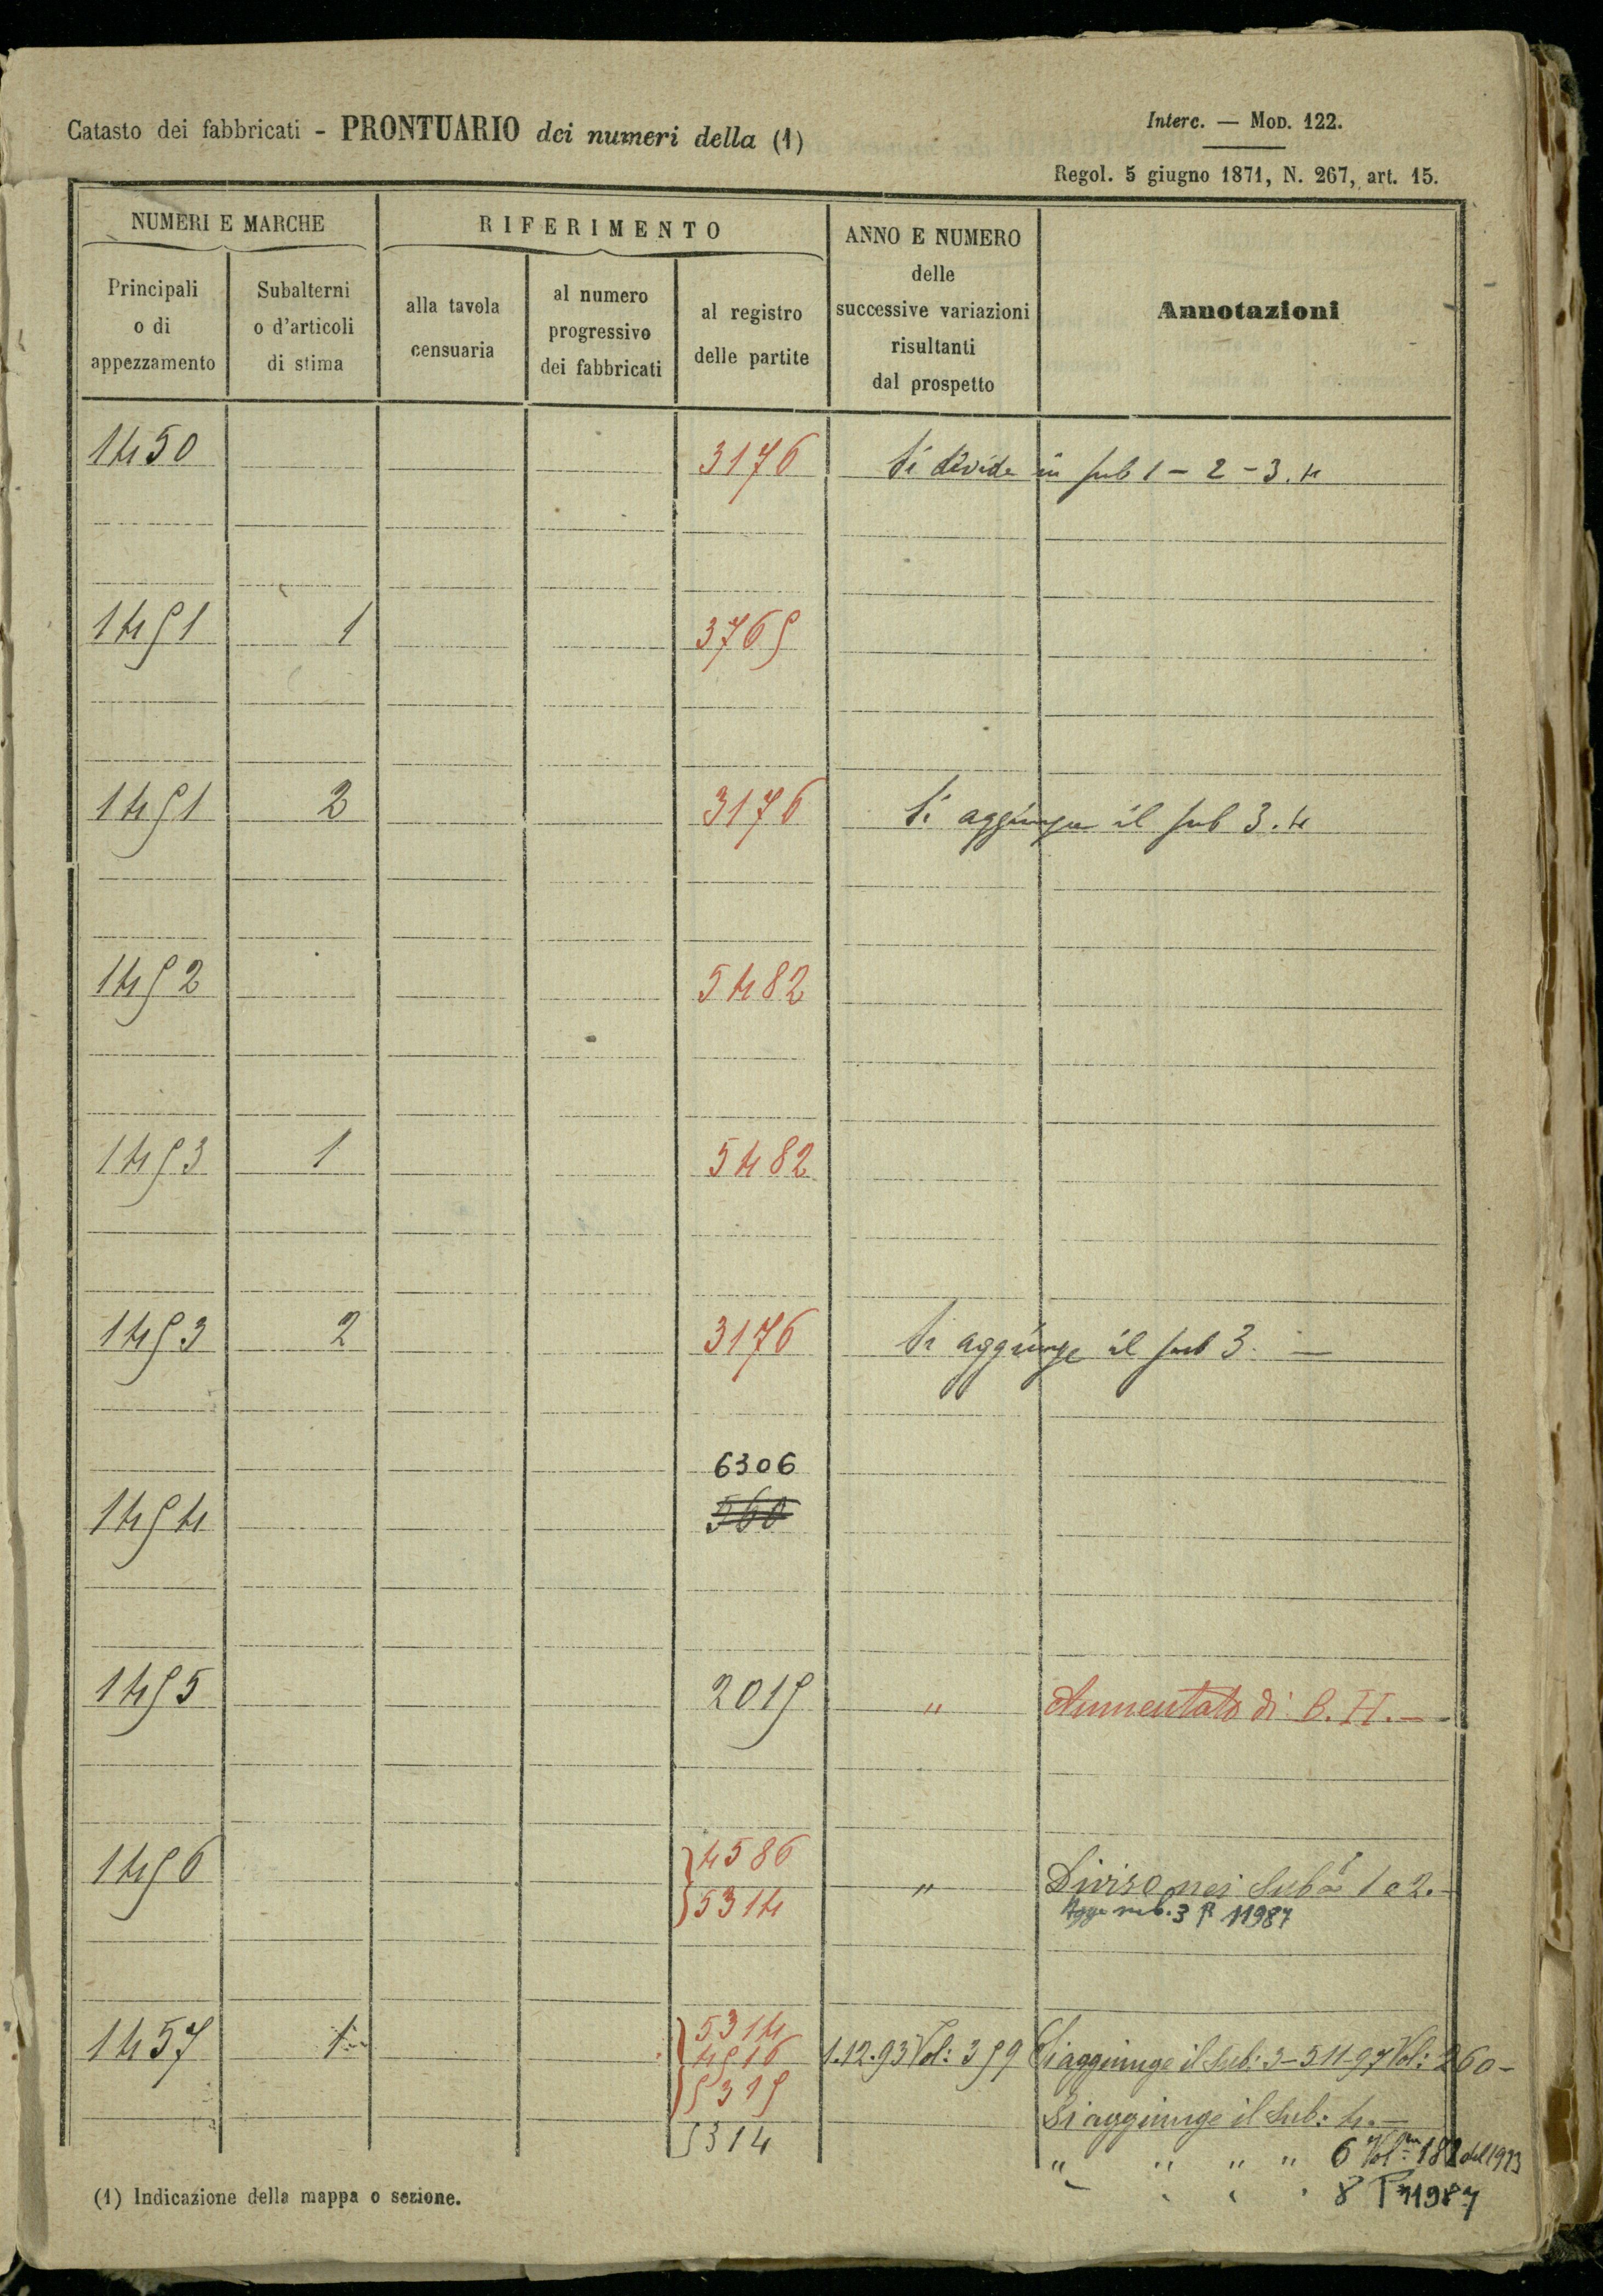 Catasto dei fabbricati - PRONTUARIO dei numeri della (1)
Interc. — MOD. 122.
Regol. 5 giugno 1871, N. 267, art. 15.
NUMERI E MARCHE
RIFERIMENTO
ANNO E NUMERO
delle
successive variazioni
risultanti
dal prospetto
Annotazioni
Principali
o di
appezzamento
Subalterni
o d'articoli
di stima
alla tavola
censuaria
al numero
progressivo
dei fabbricati
al registro
delle partite
1450 3176 Si divide in sub 1 - 2 - 3. 4
1451 1 3765
1451 2 3176 Si aggiunge il sub 3. 4
1452 5482
1453 1 5482
1453 2 3176 Si aggiunge il sub 3. —
6306
1454 560
1455 2015 " Aumentato di B. II. —
4586
1456 " Diviso nei Sub.i 1 e 2. -
5314
Agge sub. 3 P 11987
5314
1457 1 4516 1.12.93 Vol: 359 Si aggiunge il Sub: 3 - 511-97 Vol: 260 -
5315
Si aggiunge il Sub: 4. —
5314
" " " " 6 Vol. 182 del 1923
8 P 11987
(1) Indicazione della mappa o sezione.